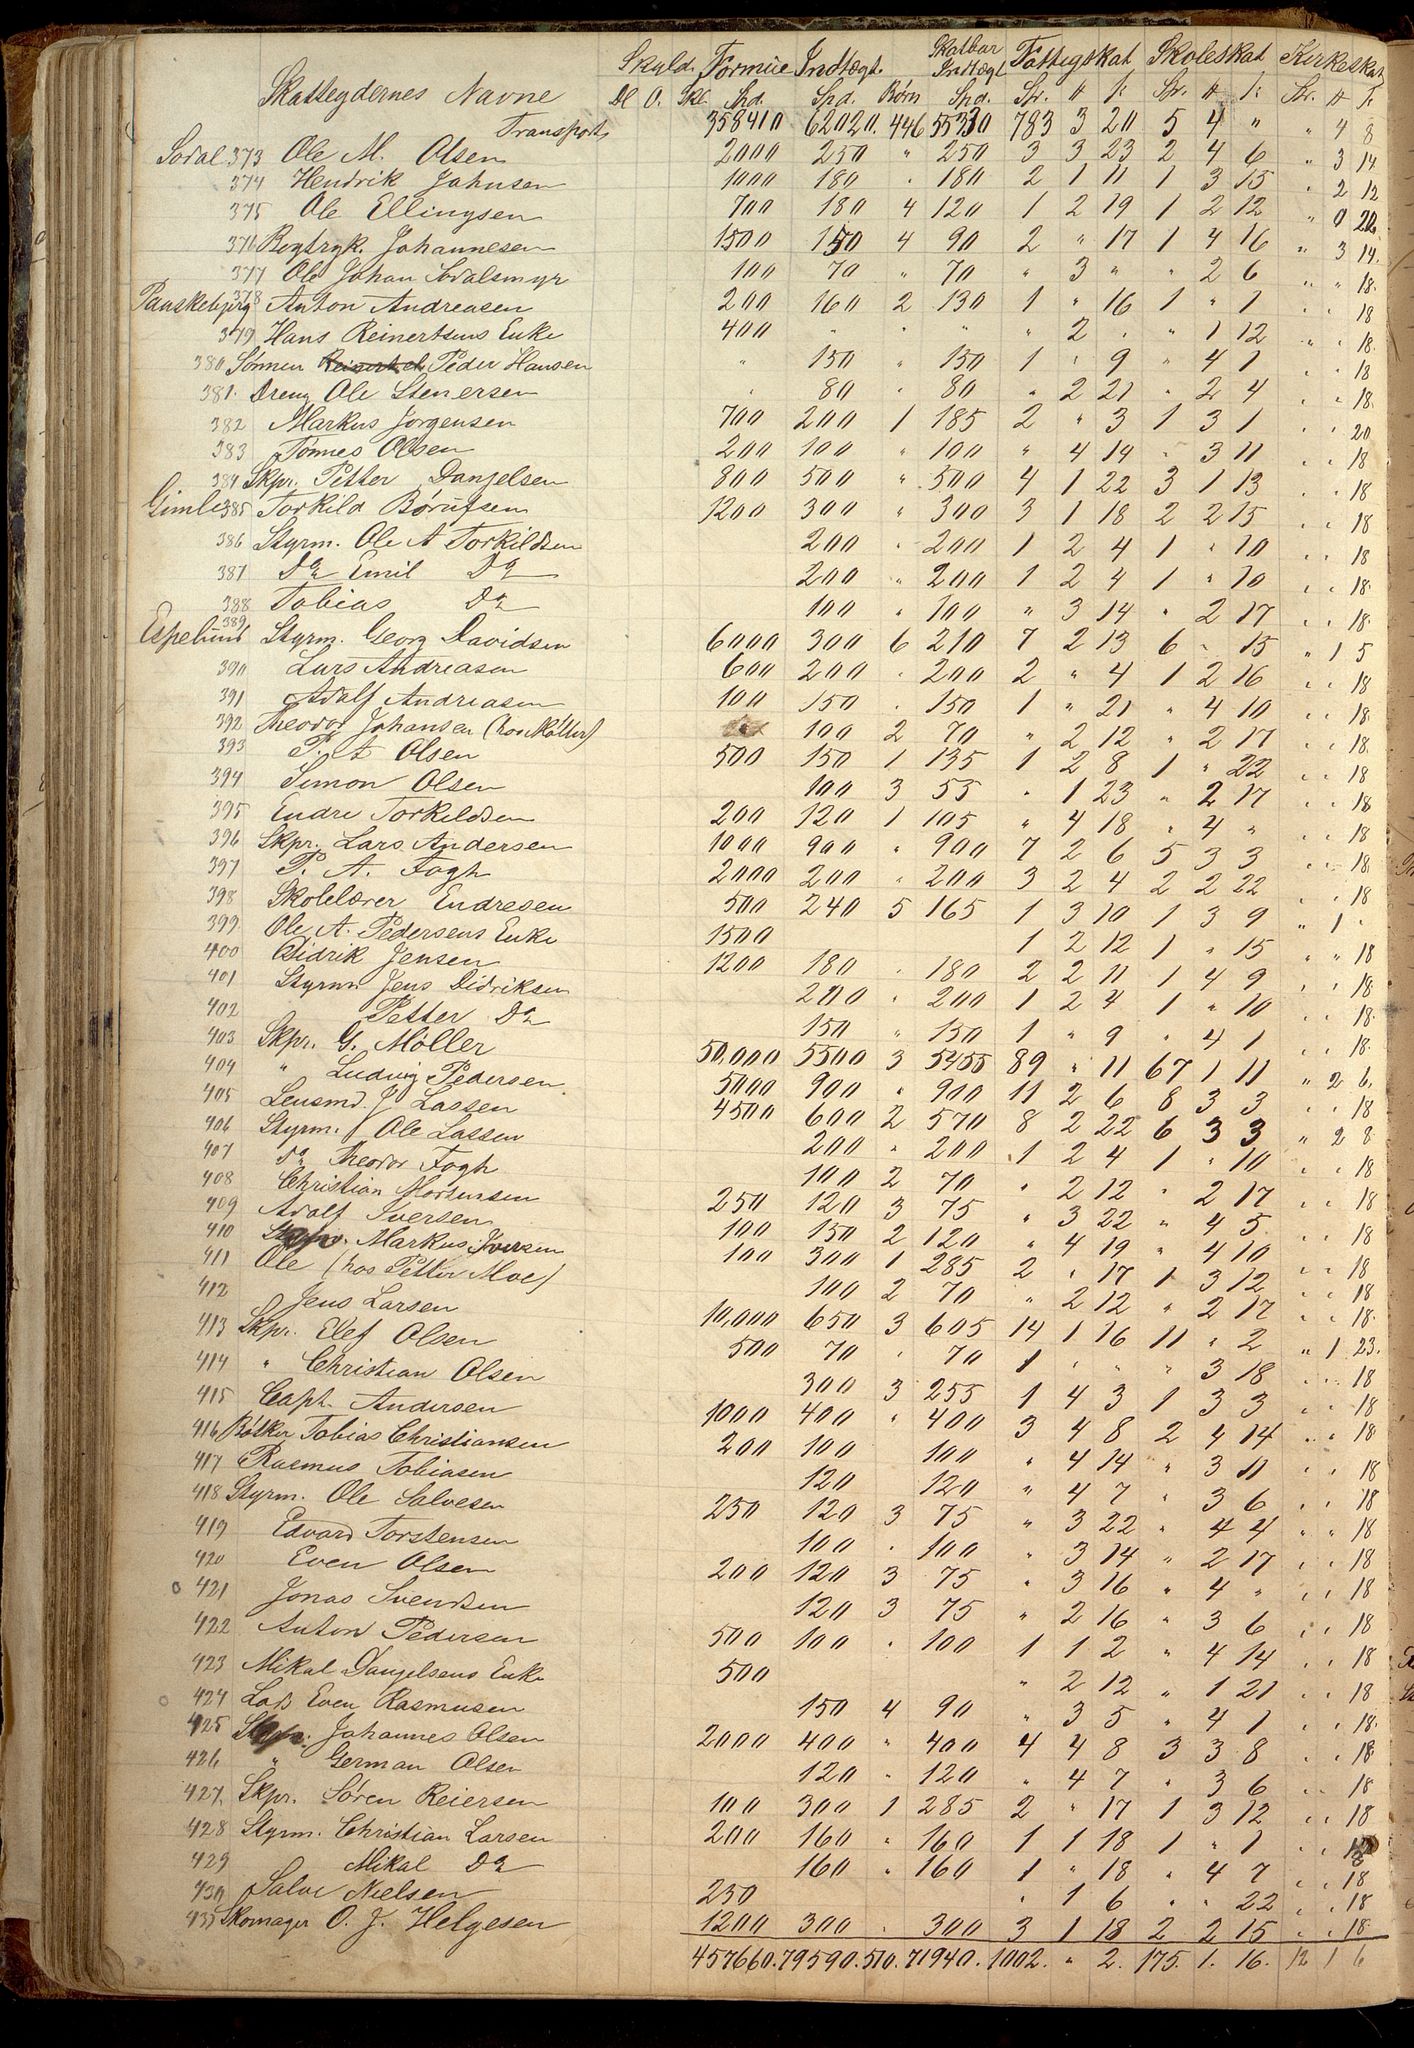 Skatteydernes Navne Skyld. Formue Indtægt. Skatbar Indtægt Fattigskat Skoleskat Kirkeskat
Dl O. Skl. Spd. Spd. Børn Spd. Spr. # ſ: Spr. # ſ: Spr. # ſ:
Transport 358410 62020. 446 55330 783 3 20 5 4 " " 4 8
Sodal 373 Ole M. Olsen 2000 250 " 250 3 3 23 2 4 6 " 3 14
374 Hendrik Johnsen 1000 180 " 180 2 1 11 1 3 15 " 2 12
375 Ole Ellingsen 700 180 4 120 1 2 19 1 2 12 " 0 22
376 Bogtryk. Johannesen 1500 150 4 90 2 " 17 1 4 16 " 3 14.
377 Ole Johan Sodalsmyr 100 70 " 70 " 3 " " 2 6 " " 18.
378 Anton Andreasen 200 160 2 130 1 " 16 1 " 1 " " 18
379 Hans Reinertsens Enke 400 " " " " 2 " " 1 12 " " 18.
380 Sønnen Peder Hansen " 150 " 150 1 " 9 " 4 1 " " 18
381. Dreng Ole Stenersen " 80 " 80 " 2 21 " 2 4 " " 18.
382 Markus Jorgensen 700 200 1 185 2 " 3 1 3 1 " " 20
383 Tønnes Olsen 200 100 " 100 " 4 14 " 3 11 " " 18
384 Skpr. Petter Danjelsen 800 500 " 500 4 1 22 3 1 13 " " 18
Gimle 385 Torkild Børufsen 1200 300 " 300 3 1 18 2 2 15 " " 18
386 Styrm. Ole A Torkildsen 200 " 200 1 2 4 1 " 10 " " 18
387 Do Emil Do 200 " 200 1 2 4 1 " 10 " " 18.
388 Tobias Do 100 " 100 " 3 14 " 2 17 " " 18.
Espelund 389 Styrm. Georg Davidsen 6000 300 6 210 7 2 13 6 " 15 " 1 5
390 Lars Andreasen 600 200 " 200 2 " 4 1 2 16 " " 18
391 Adolf Andreasen 100 150 " 150 1 " 21 " 4 10 " " 18.
392 Theodor Johansen (hos Møller) 100 2 70 " 2 12 " 2 17 " " 18.
393 P. A Olsen 500 150 1 135 1 2 8 1 " 22 " " 18
394 Simon Olsen 100 3 55 " 1 23 " 2 17 " " 18
395 Endre Torkildsen 200 120 1 105 " 4 18 " 4 " " " 18
396 Skpr. Lars Andersen 1000 900 " 900 7 2 6 5 3 3 " " 18.
397 P. A. Fogh 2000 200 " 200 3 2 4 2 2 22 " " 18
398 Skolelærer Endresen 500 240 5 165 1 3 10 1 3 9 " 1 "
399. Ole A. Pedersens Enke 1500 1 2 12 1 " 15 " " 18
400 Didrik Jensen 1200 180 " 180 2 2 11 1 4 9 " " 18
401 Styrm Jens Didriksen 200 " 200 1 2 4 1 " 10 " " 18.
402 Petter Do 150 " 150 1 " 9 " 4 1 " " 18.
403 Skpr. G. Møller 50,000 5500 3 5455 89 " 11 67 1 11 " 2 6.
404 " Ludwig Pedersen 5000 900 " 900 11 2 6 8 3 3 " " 18
405 Lensmd. J Lassen 4500 600 2 570 8 2 22 6 3 3 " 2 8
406 Styrm. Ole Lassen 200 " 200 1 2 4 1 " 10 " " 18
407 Do Theodor Fogh 100 2 70 " 2 12 " 2 17 " " 18
408 Christian Mortensen 250 120 3 75 " 3 22 " 4 5 " " 18
409 Adolf Iversen 100 150 2 120 " 4 19 " 4 10 " " 18
410 Markus Iversen 100 300 1 285 2 " 17 1 3 12 " " 18
411 Ole (hos Petter Moe) 100 2 70 " 2 12 " 2 17 " " 18.
412 Jens Larsen 10,000 650 3 605 14 1 16 11 " 2 " 1 23.
413 Skpr. Elef Olsen 500 70 " 70 1 " " " 3 18 " " 18
414 " Christian Olsen 300 3 255 1 4 3 1 3 3 " " 18
415 Capt. Andersen 1000 400 " 400 3 4 8 2 4 14 " " 18
416 Bøtker Tobias Christiansen 200 100 100 " 4 14 " 3 11 " " 18
417 Rasmus Tobiasen 120 120 " 4 7 " 3 6 " " 18
418 Styrm. Ole Salvesen 250 120 3 75 " 3 22 " 4 4 " " 18
419 Edvard Torstensen 100 " 100 " 3 14 " 2 17 " " 18
420 Even Olsen 200 120 3 75 " 3 16 " 4 " " " 18
o 421 Jonas Svendsen 120 3 75 " 2 16 " 3 6 " " 18
422 Anton Pedersen 500 100 " 100 1 1 2 " 4 14 " " 18
423 Mikal Danjelsens Enke 500 " 2 12 " 1 21 " " 18
o 424 Lods Even Rasmusen 150 4 90 " 3 5 " 4 1 " " 18.
425 Johannes Olsen 2000 400 " 400 4 4 8 3 3 8 " " 18
426 " German Olsen 120 " 120 " 4 7 " 3 6 " " 18
427. Skpr. Søren Reiersen 100 300 1 285 2 " 17 1 3 12 " " 18
428 Styrm. Christian Larsen 200 160 " 160 1 1 18 1 " 1 " " 18
429 Mikal Do 160 " 160 1 " 18 " 4 7 " " 18
430 Salve Nielsen 250 " 1 6 " " 22 " " 18
431 Skomager O. J. Helgesen 1200 300 " 300 3 1 18 2 2 15 " " 18
457660. 79590. 510. 71940. 1002. " 2. 175. 1. 16. 12 1 6